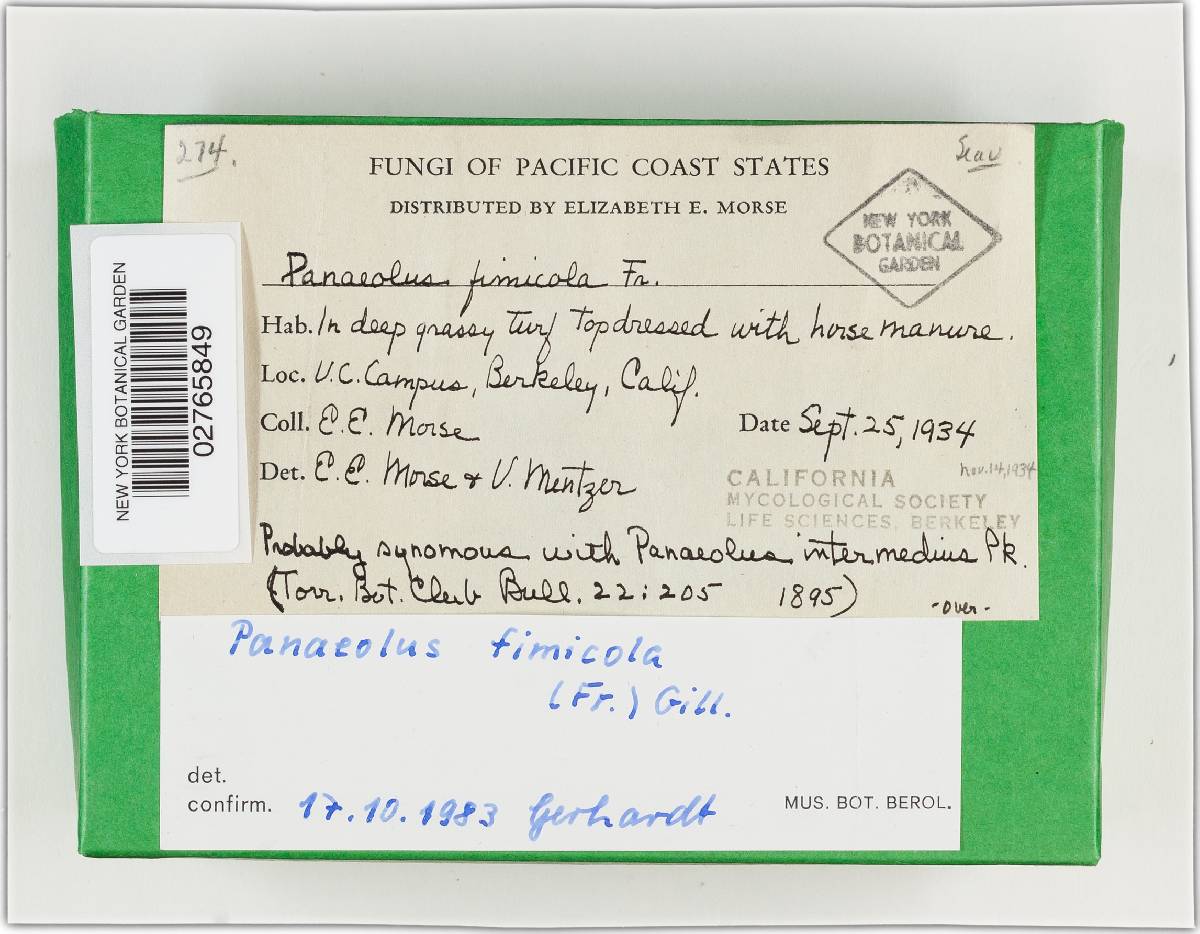 274.
FUNGI OF PACIFIC COAST STATES
DISTRIBUTED BY ELIZABETH E. MORSE
NEW YORK
BOTANICAL
GARDEN
Panaeolus fimicola Fr.
Hab. In deep grassy turf topdressed with horse manure.
Loc. U.C. Campus, Berkeley, Calif.
Coll. E.E. Morse Date Sept. 25, 1934
Det. E.E. Morse & V. Mentzer
Nov. 14, 1934
CALIFORNIA
MYCOLOGICAL SOCIETY
LIFE SCIENCES, BERKELEY
Probably synomous with Panaeolus intermedius Pk.
(Torr. Bot. Club Bull. 22:205 1895)
-over-
NEW YORK BOTANICAL GARDEN
02765849
Panaeolus fimicola
(Fr.) Gill.
det.
confirm. 17.10.1983 Gerhardt
MUS. BOT. BEROL.